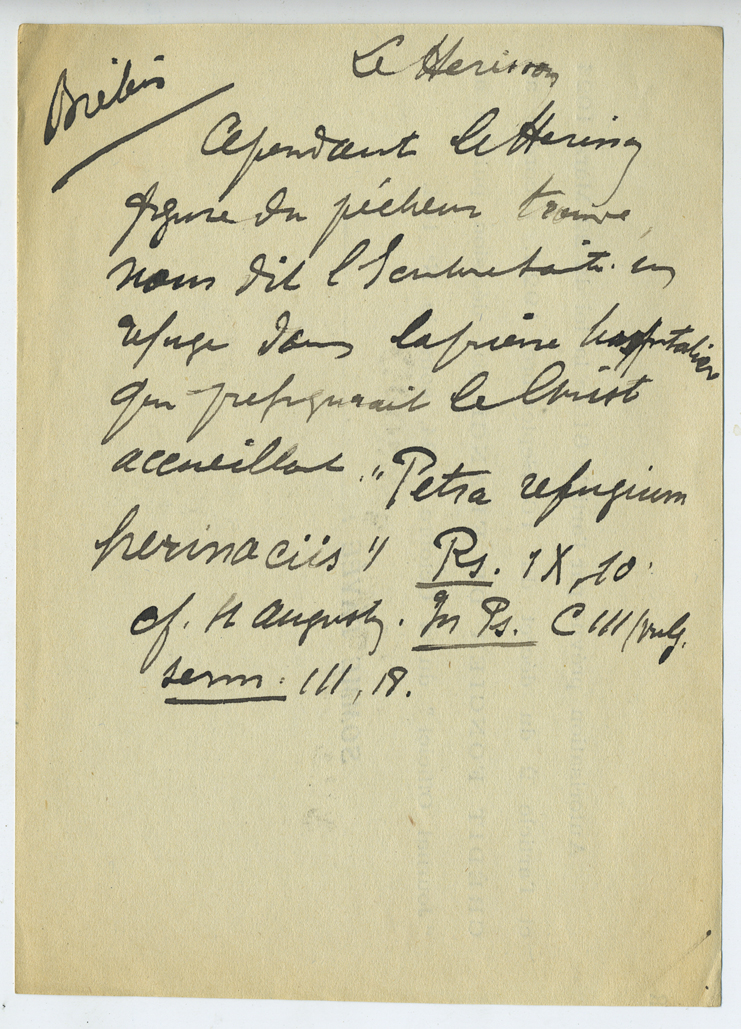 Le Herisson
Brebis
Cependant le Herisson
figure du pécheur trouve,
nous dit l'Ecriture sainte un
refuge dans la pierre hospitalière
qui prefigurait le Christ
accueillant. "Petra refugium
herinaciis" Ps. IX, 10.
cf. St Augustin. In Ps. CIII/vulg.
serm. III, 18.